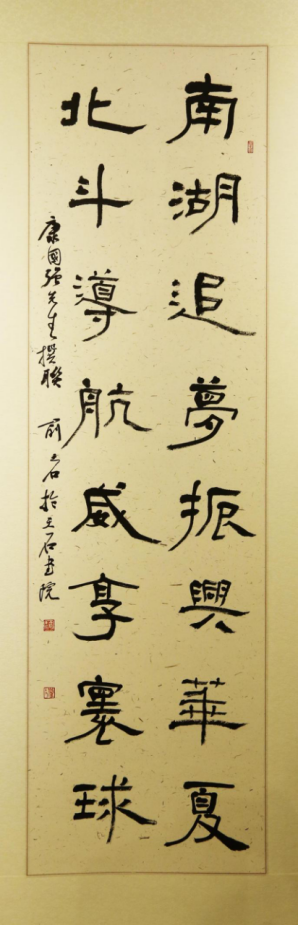 南湖追夢振興華夏
北斗導航威享寰球
康國强先生撰聯 石於石书院